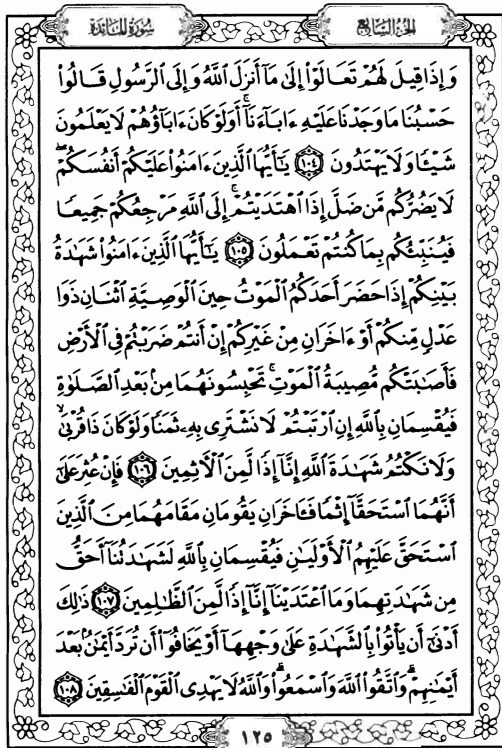 سُورَةُ المَائِدَةِ
الجُزْءُ السَّابِعُ
وَإِذَا قِيلَ لَهُمْ تَعَالَوْا۟ إِلَىٰ مَآ أَنزَلَ ٱللَّهُ وَإِلَى ٱلرَّسُولِ قَالُوا۟
حَسْبُنَا مَا وَجَدْنَا عَلَيْهِ ءَابَآءَنَآ ۚ أَوَلَوْ كَانَ ءَابَآؤُهُمْ لَا يَعْلَمُونَ
شَيْـًٔا وَلَا يَهْتَدُونَ ١٠٤ يَـٰٓأَيُّهَا ٱلَّذِينَ ءَامَنُوا۟ عَلَيْكُمْ أَنفُسَكُمْ ۖ
لَا يَضُرُّكُم مَّن ضَلَّ إِذَا ٱهْتَدَيْتُمْ ۚ إِلَى ٱللَّهِ مَرْجِعُكُمْ جَمِيعًا
فَيُنَبِّئُكُم بِمَا كُنتُمْ تَعْمَلُونَ ١٠٥ يَـٰٓأَيُّهَا ٱلَّذِينَ ءَامَنُوا۟ شَهَـٰدَةُ
بَيْنِكُمْ إِذَا حَضَرَ أَحَدَكُمُ ٱلْمَوْتُ حِينَ ٱلْوَصِيَّةِ ٱثْنَانِ ذَوَا
عَدْلٍ مِّنكُمْ أَوْ ءَاخَرَانِ مِنْ غَيْرِكُمْ إِنْ أَنتُمْ ضَرَبْتُمْ فِى ٱلْأَرْضِ
فَأَصَـٰبَتْكُم مُّصِيبَةُ ٱلْمَوْتِ ۚ تَحْبِسُونَهُمَا مِنۢ بَعْدِ ٱلصَّلَوٰةِ
فَيُقْسِمَانِ بِٱللَّهِ إِنِ ٱرْتَبْتُمْ لَا نَشْتَرِى بِهِۦ ثَمَنًا وَلَوْ كَانَ ذَا قُرْبَىٰ ۙ
وَلَا نَكْتُمُ شَهَـٰدَةَ ٱللَّهِ إِنَّآ إِذًا لَّمِنَ ٱلْـَٔاثِمِينَ ١٠٦ فَإِنْ عُثِرَ عَلَىٰٓ
أَنَّهُمَا ٱسْتَحَقَّآ إِثْمًا فَـَٔاخَرَانِ يَقُومَانِ مَقَامَهُمَا مِنَ ٱلَّذِينَ
ٱسْتَحَقَّ عَلَيْهِمُ ٱلْأَوْلَيَـٰنِ فَيُقْسِمَانِ بِٱللَّهِ لَشَهَـٰدَتُنَآ أَحَقُّ
مِن شَهَـٰدَتِهِمَا وَمَا ٱعْتَدَيْنَآ إِنَّآ إِذًا لَّمِنَ ٱلظَّـٰلِمِينَ ١٠٧ ذَٰلِكَ
أَدْنَىٰٓ أَن يَأْتُوا۟ بِٱلشَّهَـٰدَةِ عَلَىٰ وَجْهِهَآ أَوْ يَخَافُوٓا۟ أَن تُرَدَّ أَيْمَـٰنٌۢ بَعْدَ
أَيْمَـٰنِهِمْ ۗ وَٱتَّقُوا۟ ٱللَّهَ وَٱسْمَعُوا۟ ۗ وَٱللَّهُ لَا يَهْدِى ٱلْقَوْمَ ٱلْفَـٰسِقِينَ ١٠٨
١٢٥